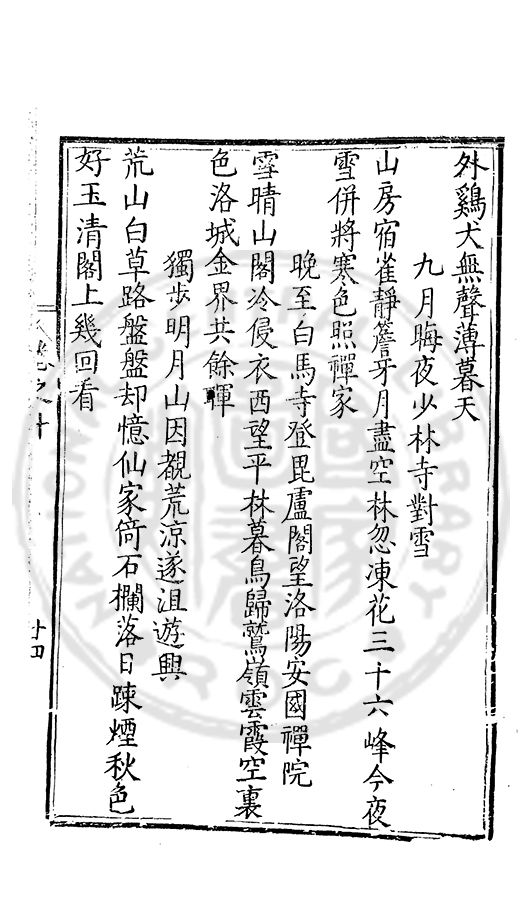 外鷄犬無聲薄暮天
九月晦夜少林寺對雪
山房宿雀靜簷牙月盡空林忽凍花三十六峰今夜
雪併將寒色照禪家
晚至白馬寺登毘盧閣望洛陽安國禪院
雪晴山閣冷侵衣西望平林暮鳥歸鷲嶺雲霞空裏
色洛城金界共餘暉
獨步明月山因覩荒涼遂沮遊興
荒山白草路盤盤却憶仙家倚石欄落日踈煙秋色
好玉清閣上幾回看
卷之十
廿四